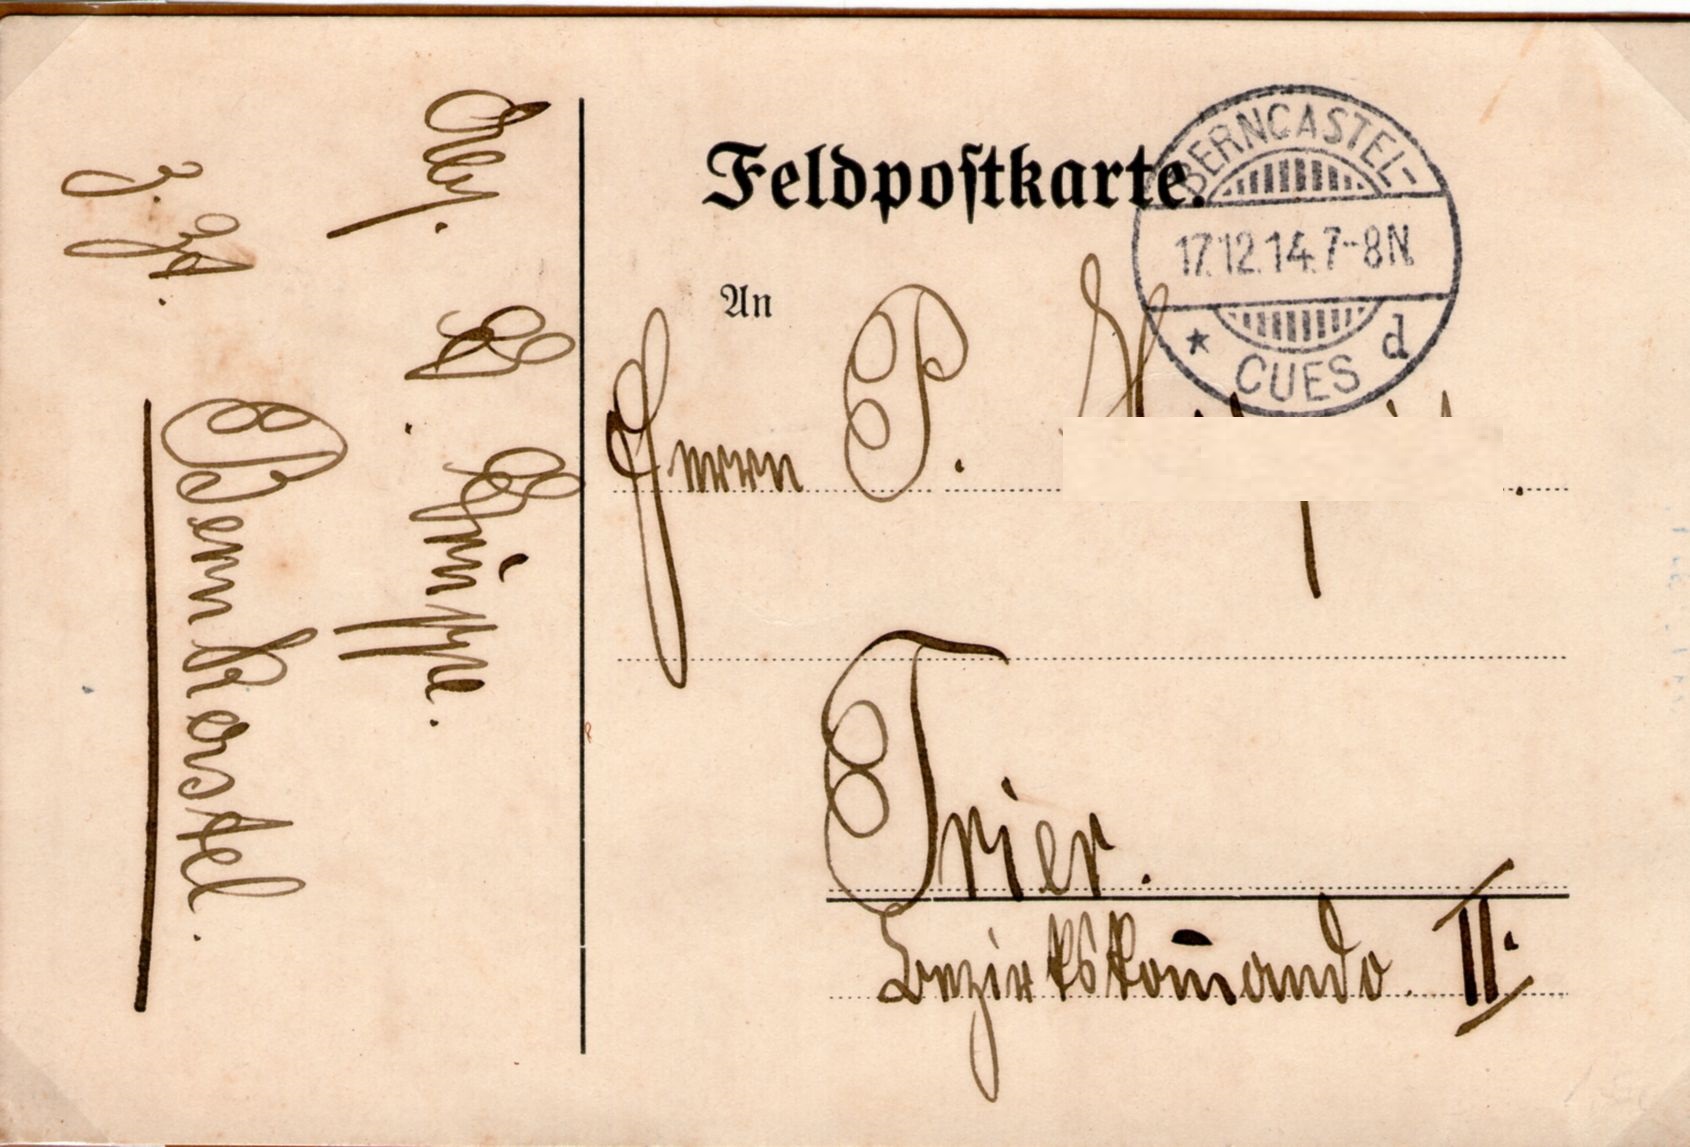 Feldpostkarte.
BERNCASTEL-
17.12.14.7-8N.
* CUES d
An
Herrn P.
Trier.
Bezirkskom̄ando II.
z. Zt.
Bernkastel.